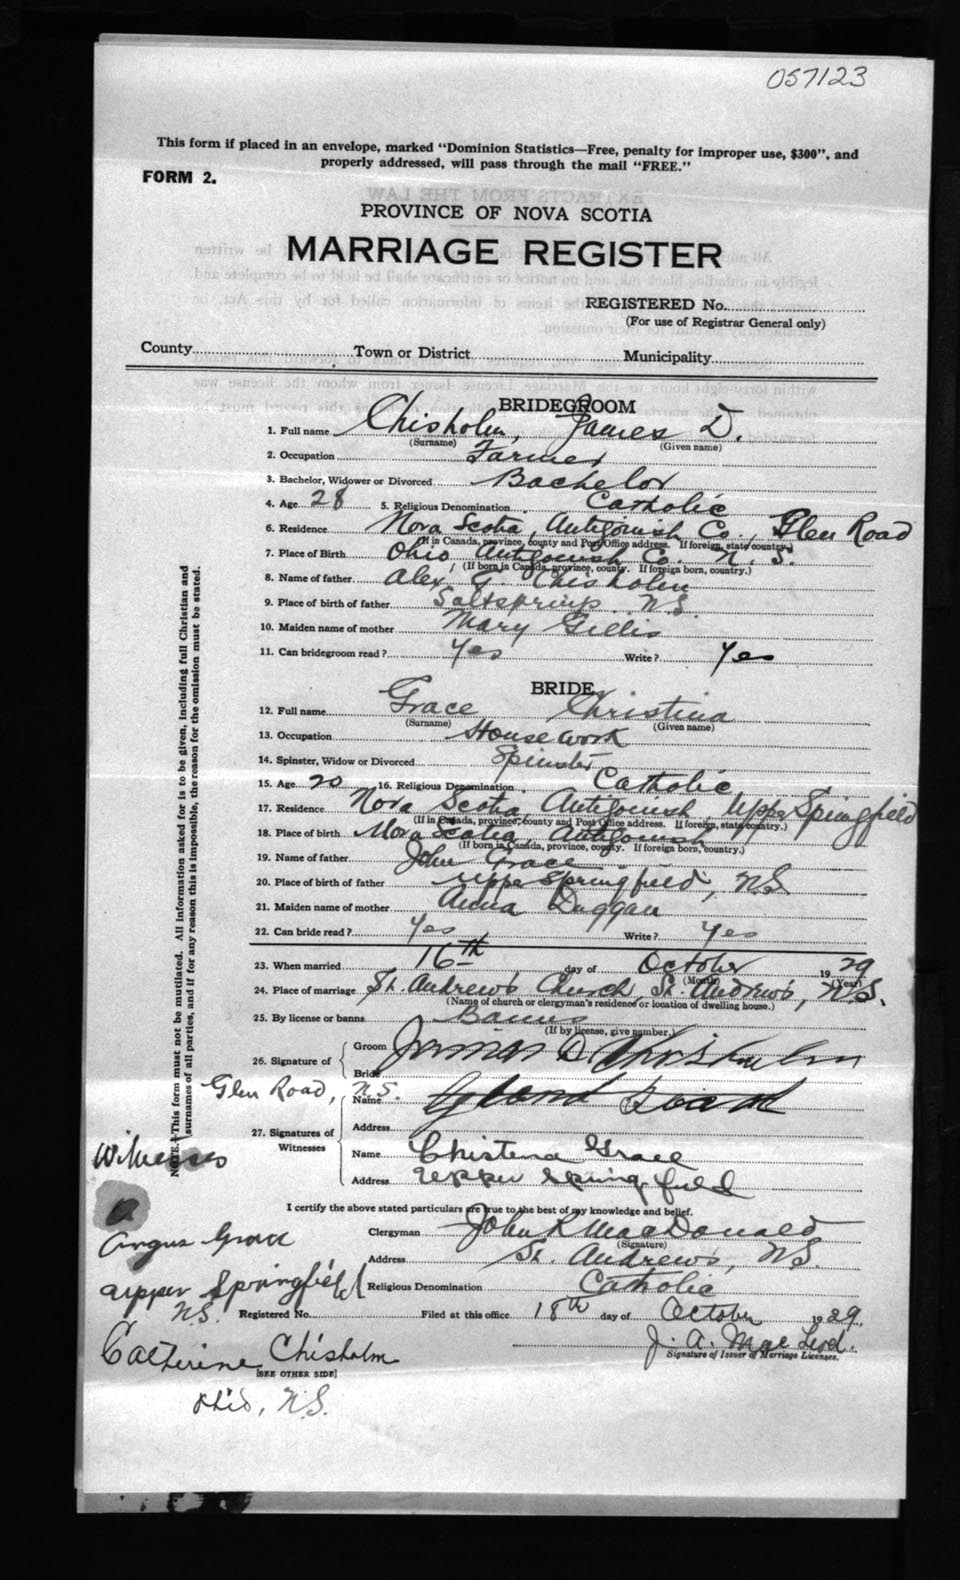 057123
This form if placed in an envelope, marked "Dominion Statistics—Free, penalty for improper use, $300", and
properly addressed, will pass through the mail "FREE."
FORM 2.
PROVINCE OF NOVA SCOTIA
MARRIAGE REGISTER
REGISTERED No.
(For use of Registrar General only)
County Town or District Municipality
BRIDEGROOM
1. Full name Chisholm, James D.
(Surname) (Given name)
2. Occupation Farmer
3. Bachelor, Widower or Divorced Bachelor
4. Age 28 5. Religious Denomination Catholic
6. Residence Nova Scotia, Antigonish Co., Glen Road
(If in Canada, province, county and Post Office address. If foreign, state country)
7. Place of Birth Ohio Antigonish Co. N.S.
(If born in Canada, province, county. If foreign born, country.)
8. Name of father Alex G. Chisholm
9. Place of birth of father Saltsprings N.S.
10. Maiden name of mother Mary Gillis
11. Can bridegroom read? Yes Write? Yes
BRIDE
12. Full name Grace Christina
(Surname) (Given name)
13. Occupation Housework
14. Spinster, Widow or Divorced Spinster
15. Age 20 16. Religious Denomination Catholic
17. Residence Nova Scotia, Antigonish, Upper Springfield
(If in Canada, province, county and Post Office address. If foreign, state country.)
18. Place of birth Nova Scotia, Antigonish
(If born in Canada, province, county. If foreign born, country.)
19. Name of father John Grace
20. Place of birth of father Upper Springfield, N.S.
21. Maiden name of mother Anna Duggan
22. Can bride read? Yes Write? Yes
23. When married 16th day of October 1929
(Month) (Year)
24. Place of marriage St. Andrew's Church, St. Andrew's, N.S.
(Name of church or clergyman's residence or location of dwelling house.)
25. By license or banns Banns
(If by license, give number.)
26. Signature of Groom James D. Chisholm
Bride
Glen Road, N.S.
27. Signatures of Witnesses
Name
Address
Name Christena Grace
Address Upper Springfield
I certify the above stated particulars are true to the best of my knowledge and belief.
Clergyman John R MacDonald
(Signature)
Address St. Andrew's, N.S.
Religious Denomination Catholic
Registered No. Filed at this office 18th day of October 1929.
J. A. MacLeod.
Signature of Issuer of Marriage Licenses.
[SEE OTHER SIDE]
NOTE.—This form must not be mutilated. All information asked for is to be given, including full Christian and
surnames of all parties, and if for any reason this is impossible, the reason for the omission must be stated.
Witnesses
Angus Grace
Upper Springfield
N.S.
Catherine Chisholm
Ohio, N.S.